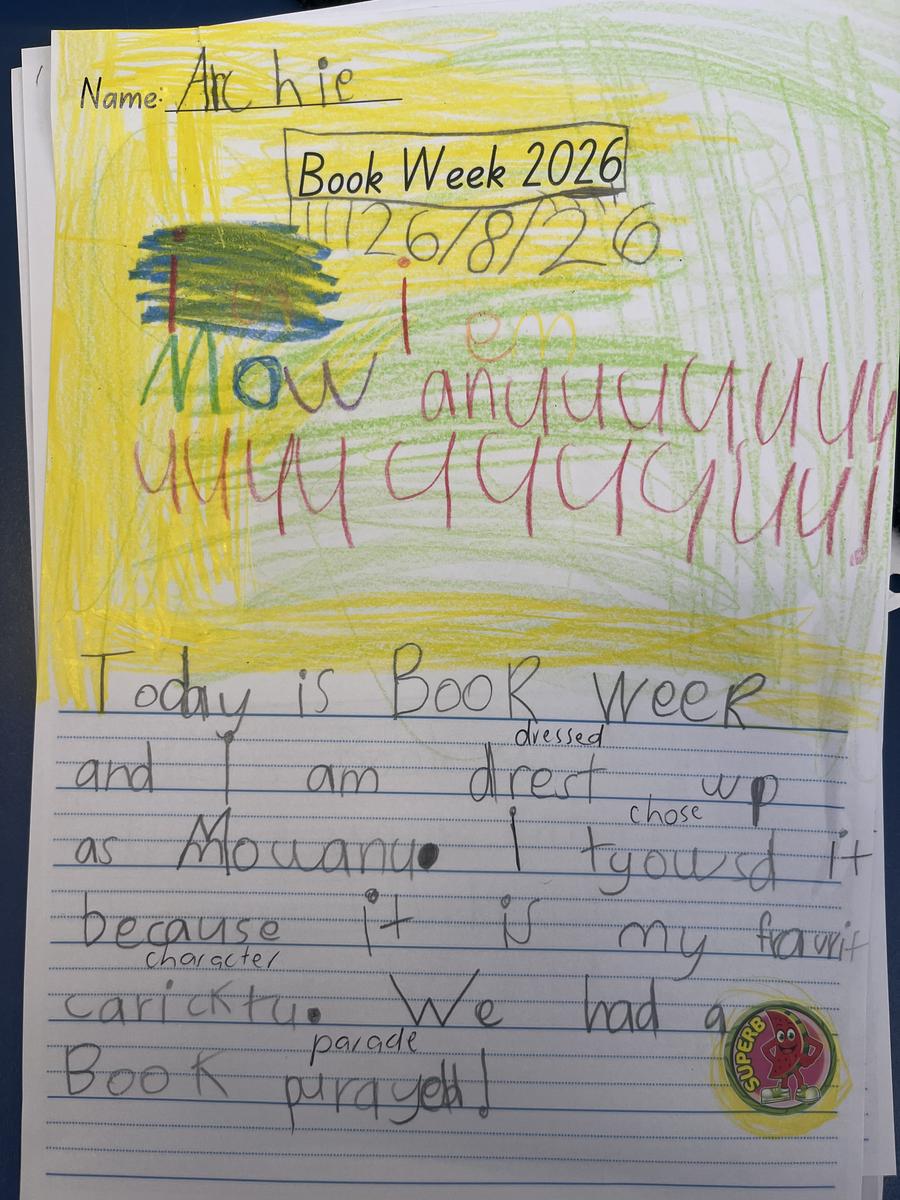 Name: Archie
Book Week 2026
26/8/26
i em
Mow anyyyyyyyy
yyyyyyyyyyyy
Today is Book week
dressed
and I am drest up
chose
as Mowanu. I tyowsd it
because it is my fravrit
character
caricktu. We had a
parade
Book purayed!
SUPERB